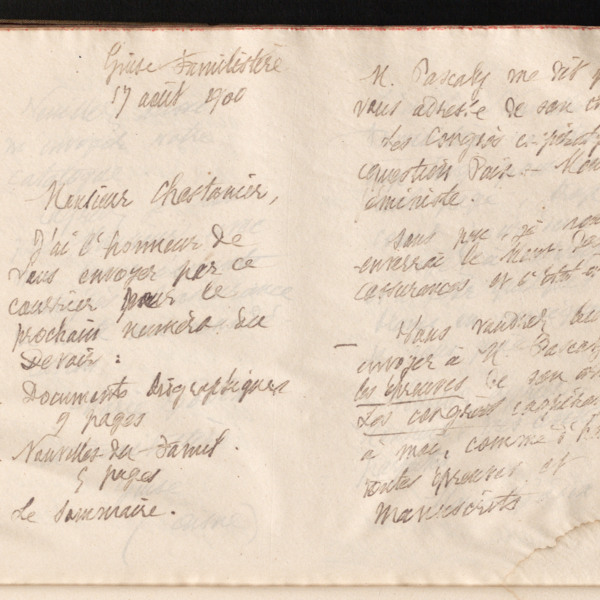 Guise Familistère
17 août 1900
Monsieur Chastanier,
J'ai l'honneur de
vous envoyer par ce
courrier pour le
prochain numéro du
Devoir :
Documents biographiques
9 pages
Nouvelles du Famil.
5 pages
Le Sommaire.
M. Pascaly me dit
vous adresse de son
Les Congrès
question Paix - Mou
éministe.
Sous peu, je
enverrai le mouv. des
assurances et l'état
Vous voudrez
envoyer à M. Pascaly
les épreuves de son
Les congrès
à moi, comme
toutes épreuves et
manuscrits